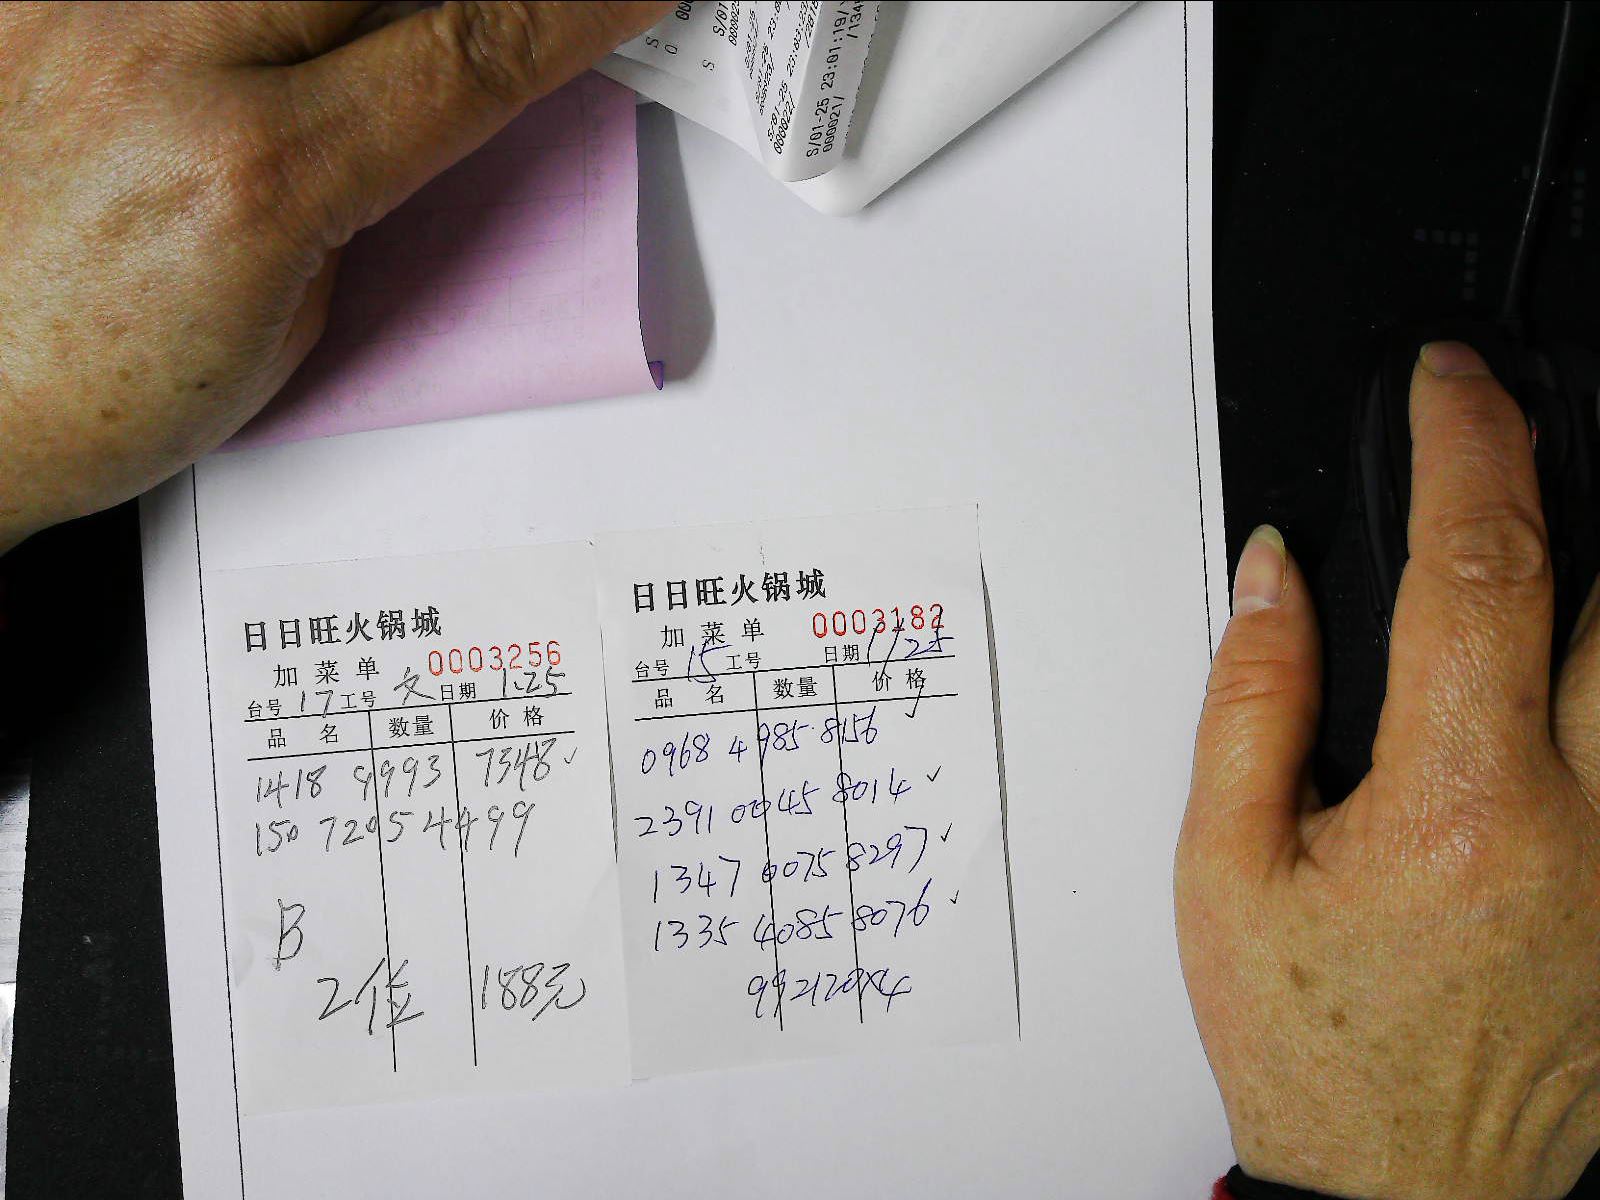 S/01-25 23:01:19/
000021/
000022/
日日旺火锅城
加菜单 0003256
台号 17 工号 文 日期 1.25
品名 数量 价格
1418 9993 7348 ✓
150 7205 4499
B
2位 188元
日日旺火锅城
加菜单 0003182
台号 15 工号 日期 1/25
品名 数量 价格
0968 4985 8156 ✓
2391 0045 8014 ✓
1347 0075 8297 ✓
1335 4085 8076 ✓